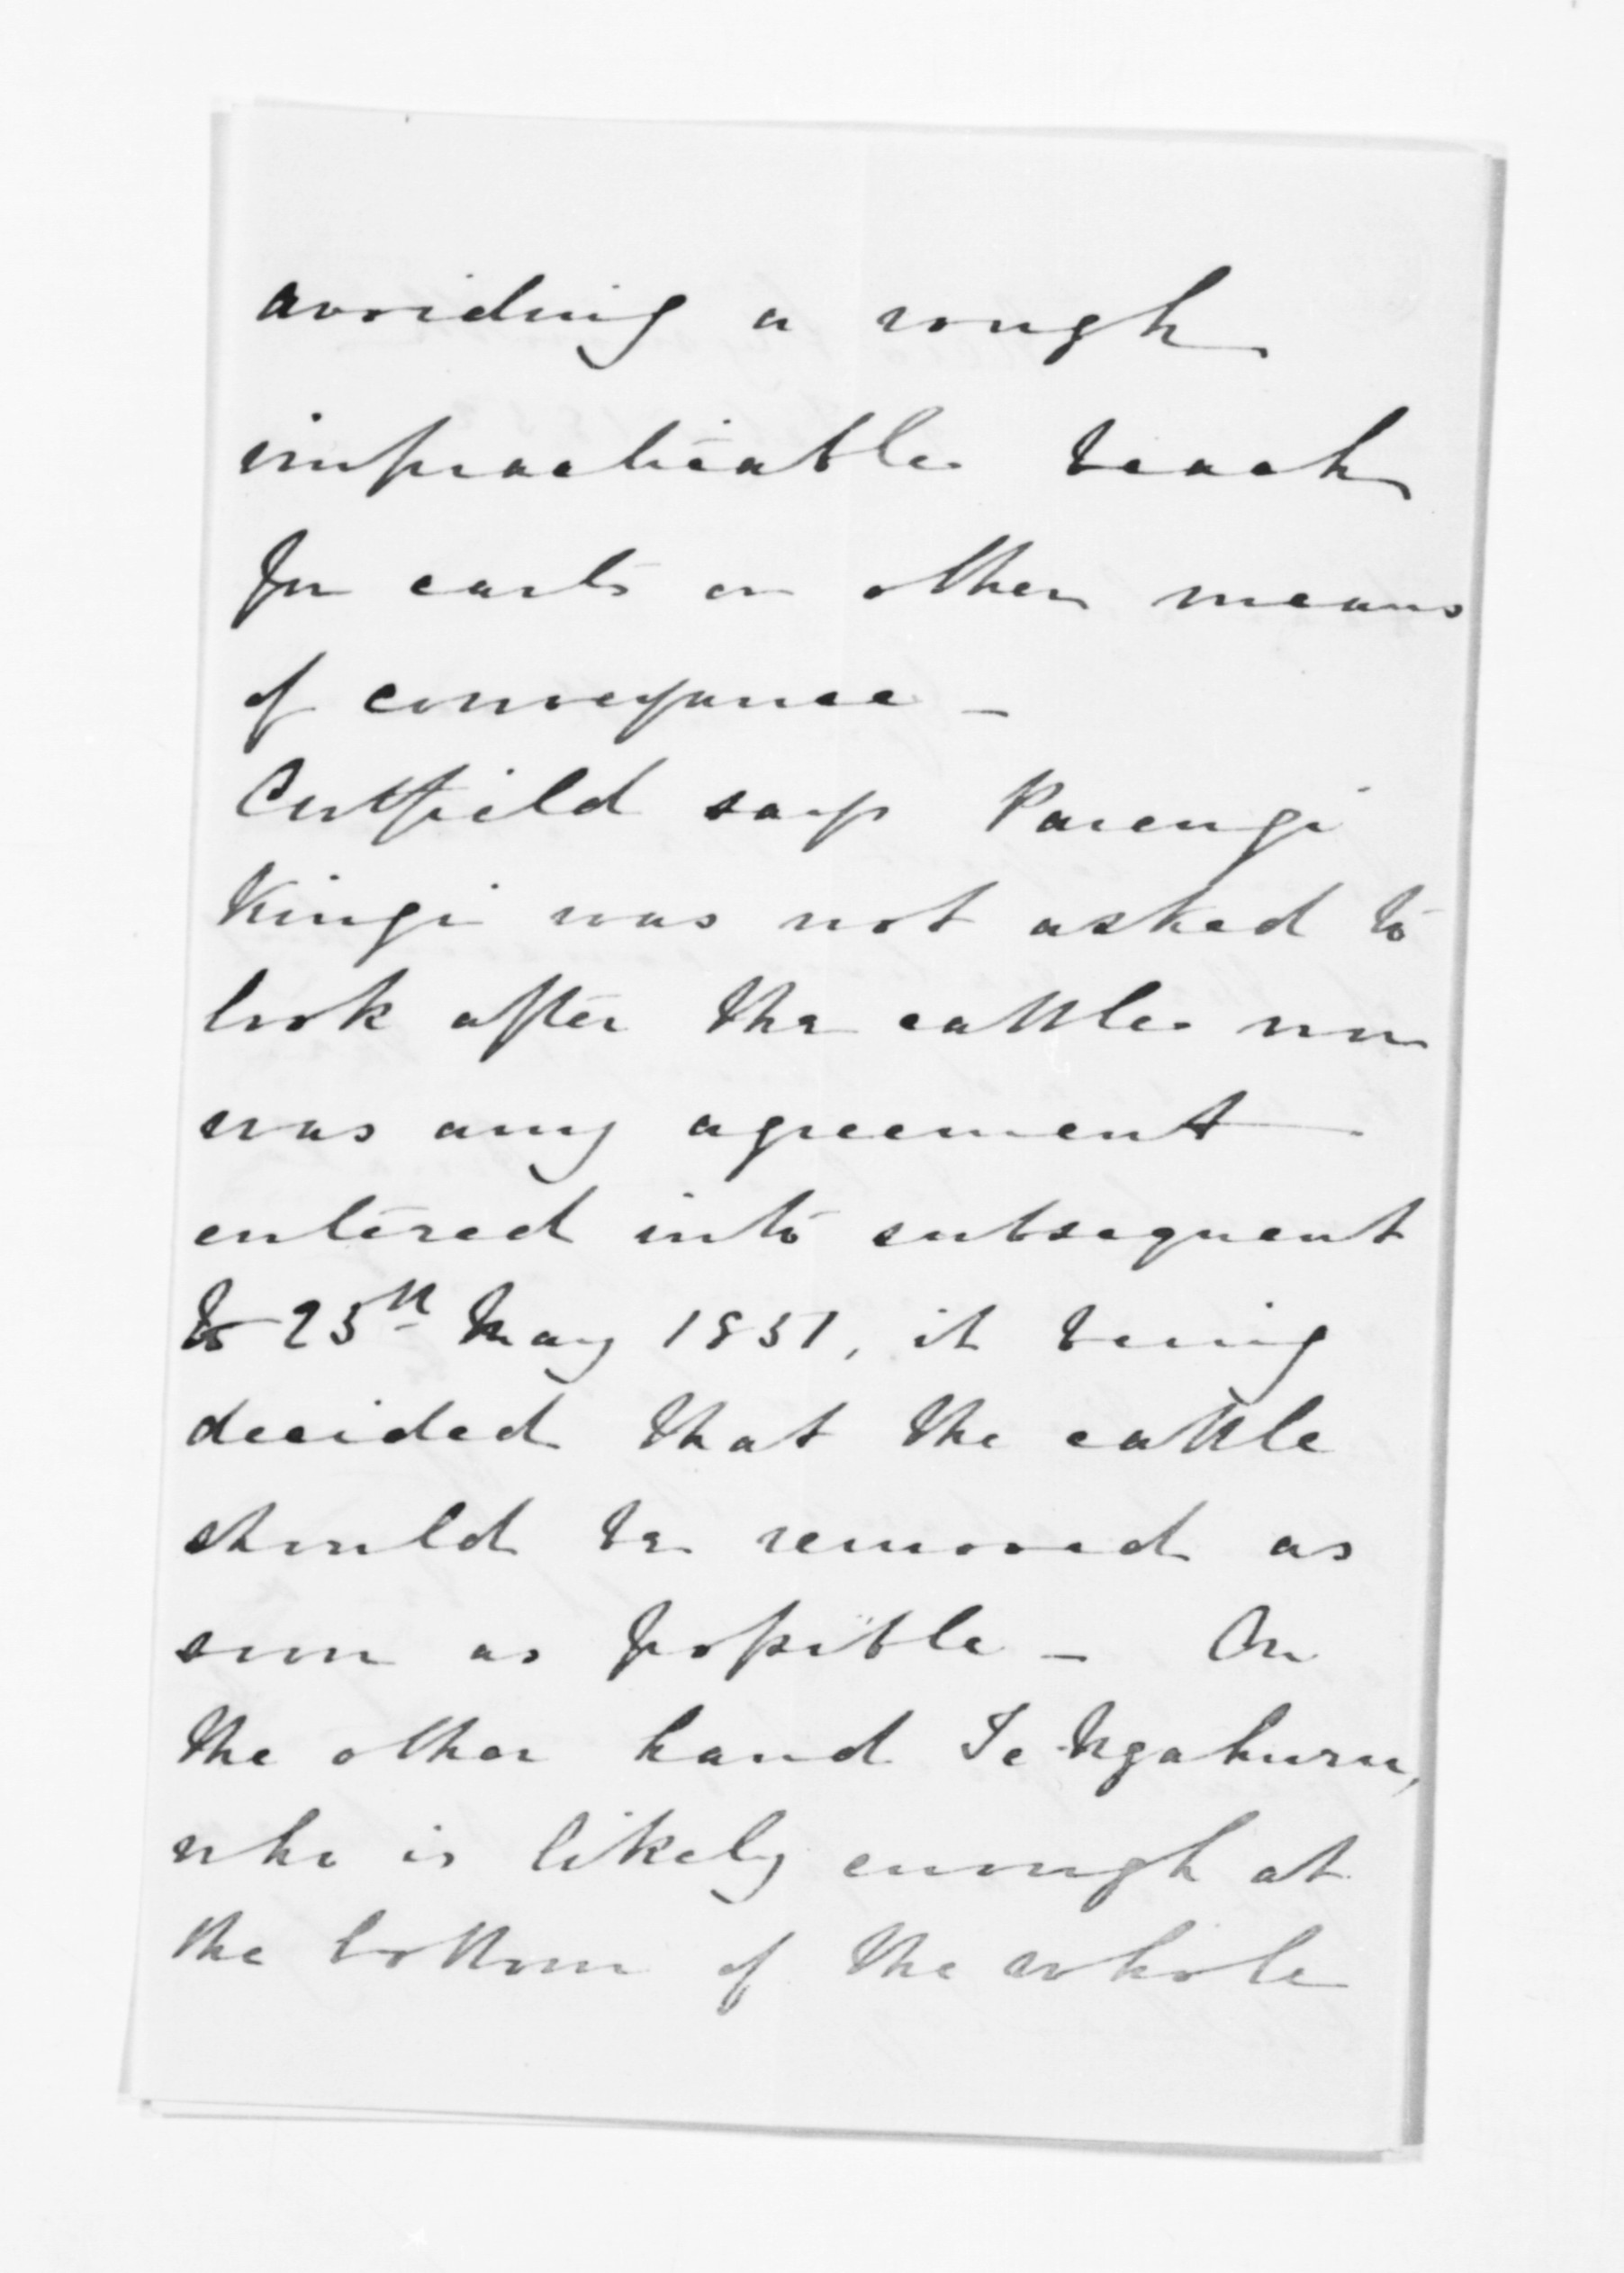 avoiding a rough
impracticable beach
for carts or other means
of conveyance -
Cutfield says Parengi
Kingi was not asked to
look after the cattle nor
was any agreement
entered into subsequent
to 25th May 1851, it being
decided that the cattle
should be removed as
soon as possible - On
the other hand Te Ngahuru,
who is likely enough at
the bottom of the whole